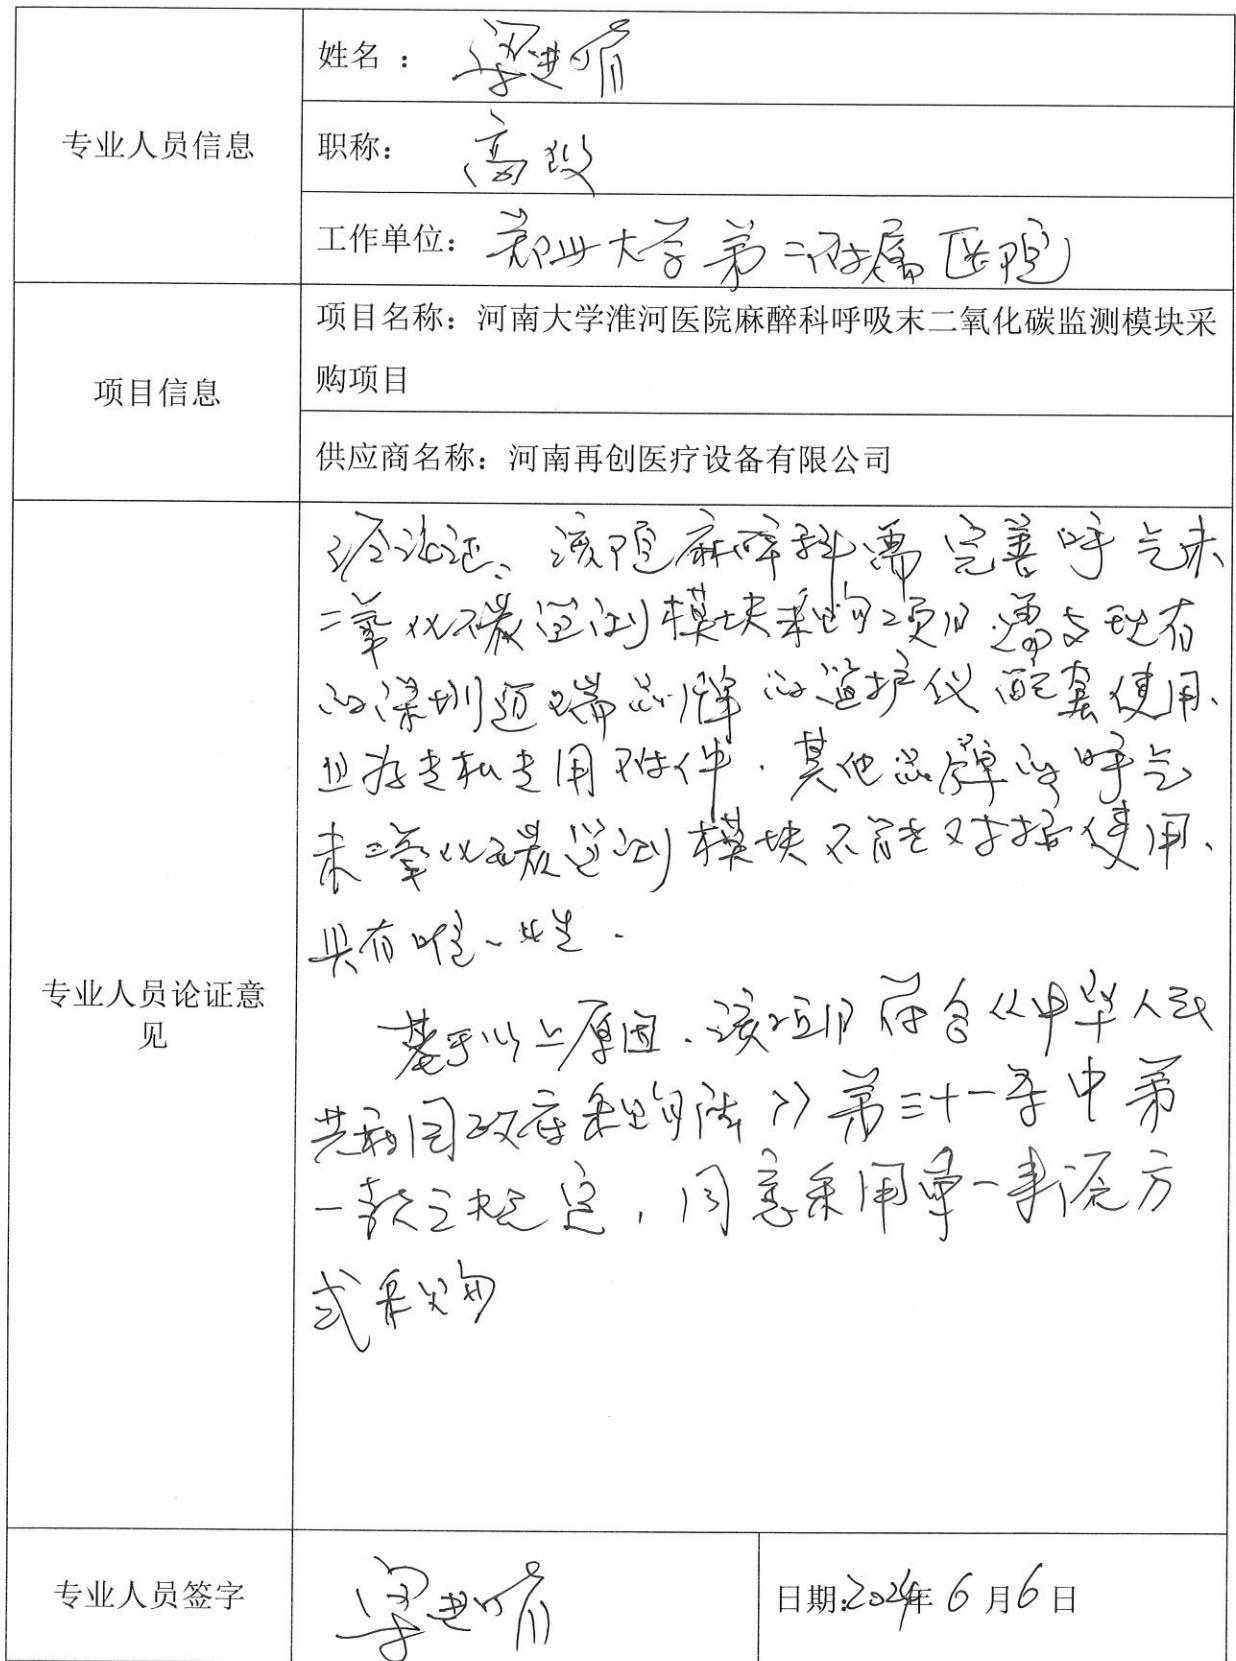 专业人员信息
姓名：
职称：
工作单位：郑州大学第二附属医院
项目信息
项目名称：河南大学淮河医院麻醉科呼吸末二氧化碳监测模块采
购项目
供应商名称：河南再创医疗设备有限公司
专业人员论证意
见
经论证、该院麻醉科需完善呼气末
二氧化碳监测模块采购项目需与现有
的深圳迈瑞品牌的监护仪配套使用、
且为专机专用附件．其他品牌的呼气
末二氧化碳监测模块不能对接使用、
具有唯一性．
基于以上原因．该项目符合《中华人民
共和国政府采购法》第三十一条中第
一款之规定，同意采用单一来源方
式采购
专业人员签字
日期:2024年6月6日